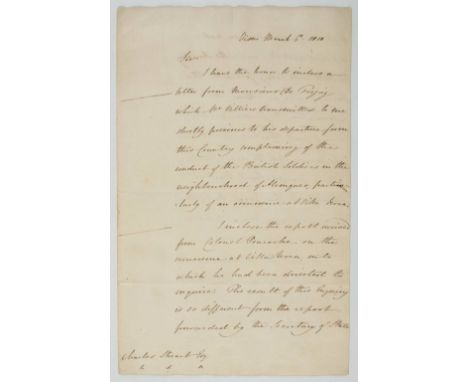 Viseu March 6th 1810
Sir
I have the honor to inclose a
letter from Monsieur de
which Mr Villiers transmitted to me
shortly previous to his departure from
this Country complaining of the
conduct of the British Soldiers in the
neighbourhood of Alenquer, particu-
larly of an occurrence at Villa Nova.
I inclose the report received
from Colonel Peacocke on the
occurrence at Villa Nova, into
which he had been directed to
inquire. The result of this Inquiry
is so different from the report
forwarded by the Secretary of State
Charles Stuart Esq